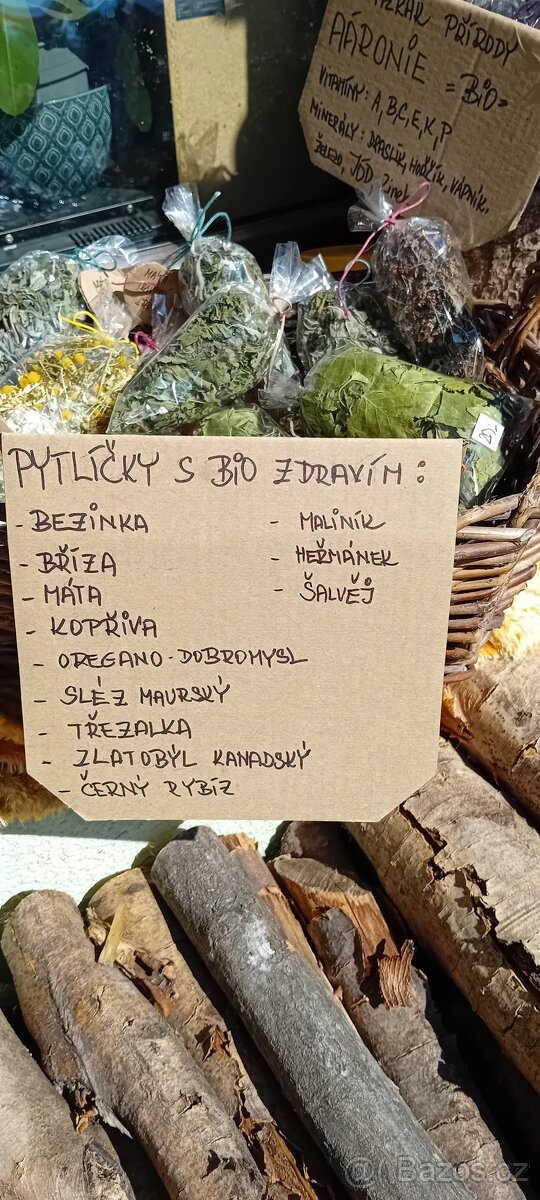 ZÁZRAK PŘÍRODY
AÁRONIE =BIO=
VITAMÍNY: A, B, C, E, K, P
MINERÁLY: DRASLÍK, HOŘČÍK, VÁPNÍK,
ŽELEZO, JÓD, Zinek
PYTLÍČKY S BIO ZDRAVÍM:
- BEZINKA
- BŘÍZA
- MÁTA
- KOPŘIVA
- OREGANO-DOBROMYSL
- SLÉZ MAURSKÝ
- TŘEZALKA
- ZLATOBÝL KANADSKÝ
- ČERNÝ RYBÍZ
- MALINÍK
- HEŘMÁNEK
- ŠALVĚJ
© Bazos.cz